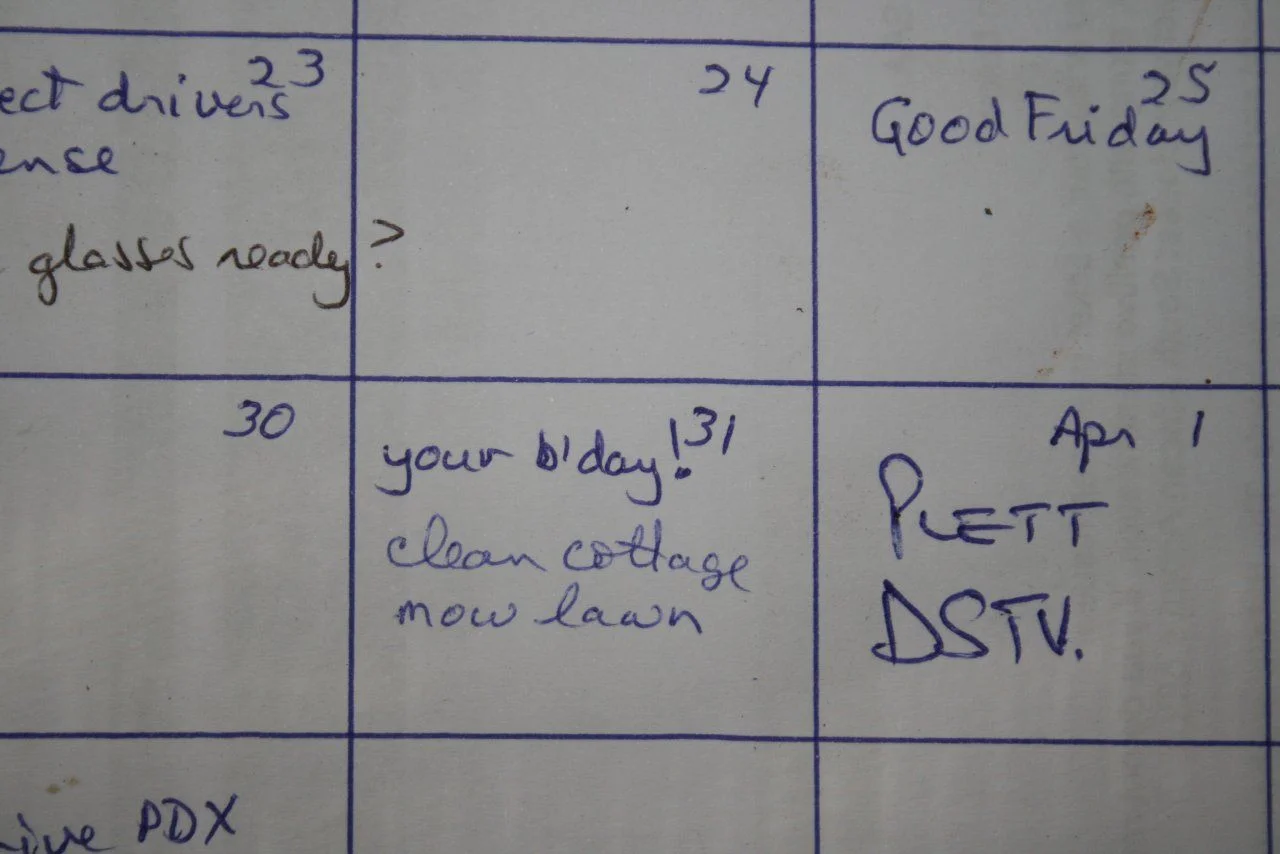 23
ect drivers
ense
glasses ready?
24
25
Good Friday
30
31
your b'day!
clean cottage
mow lawn
Apr 1
PLETT
DSTV.
ive PDX